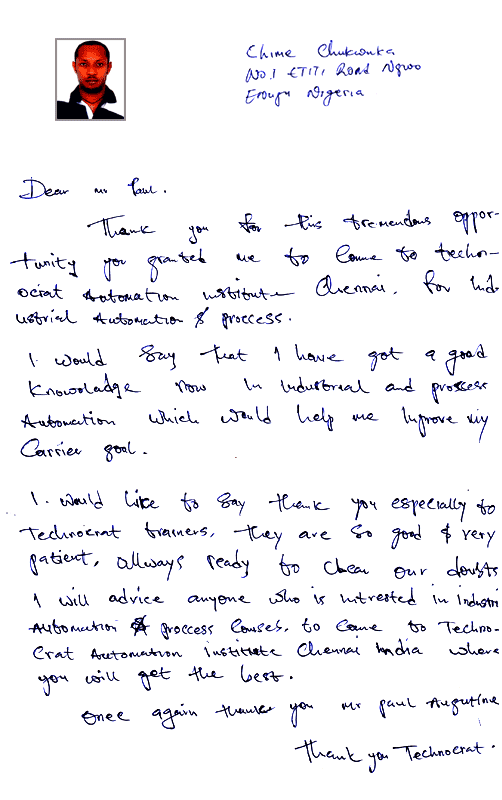 Chime Chukwuka
No.1 ETITI Road Ngwo
Enugu Nigeria
Dear mr Paul.
Thank you for this tremendous oppor-
tunity you granted me to Come to techn-
ocrat Automation institute Chennai. for Ind
ustrial Automation & proccess.
I would say that I have got a good
Knowoladge now in Industrial and prossess
Automation which would help me Improve my
Carrier goal.
I would like to say thank you especially to
Technocrat trainers, they are so good & very
patient, allways ready to clear our doubts
I will advice anyone who is intrested in Industri
Automation & proccess Courses, to Come to Techno-
Crat Automation institute Chennai India where
you will get the best.
Once again thank you Mr Paul Augustine
Thank you Technocrat.